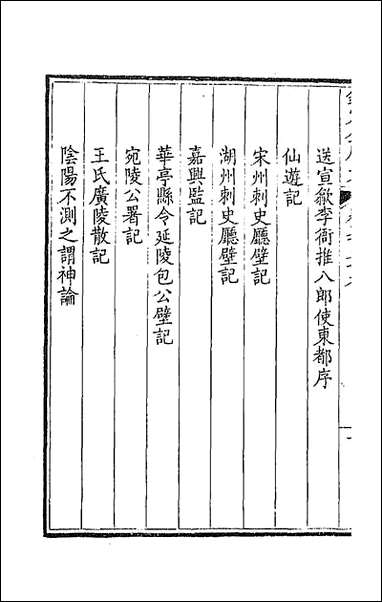 送宣歙李衙推八郎使東都序
仙遊記
宋州刺史廳壁記
湖州刺史廳壁記
嘉興監記
華亭縣令延陵包公壁記
宛陵公署記
王氏廣陵散記
陰陽不測之謂神論